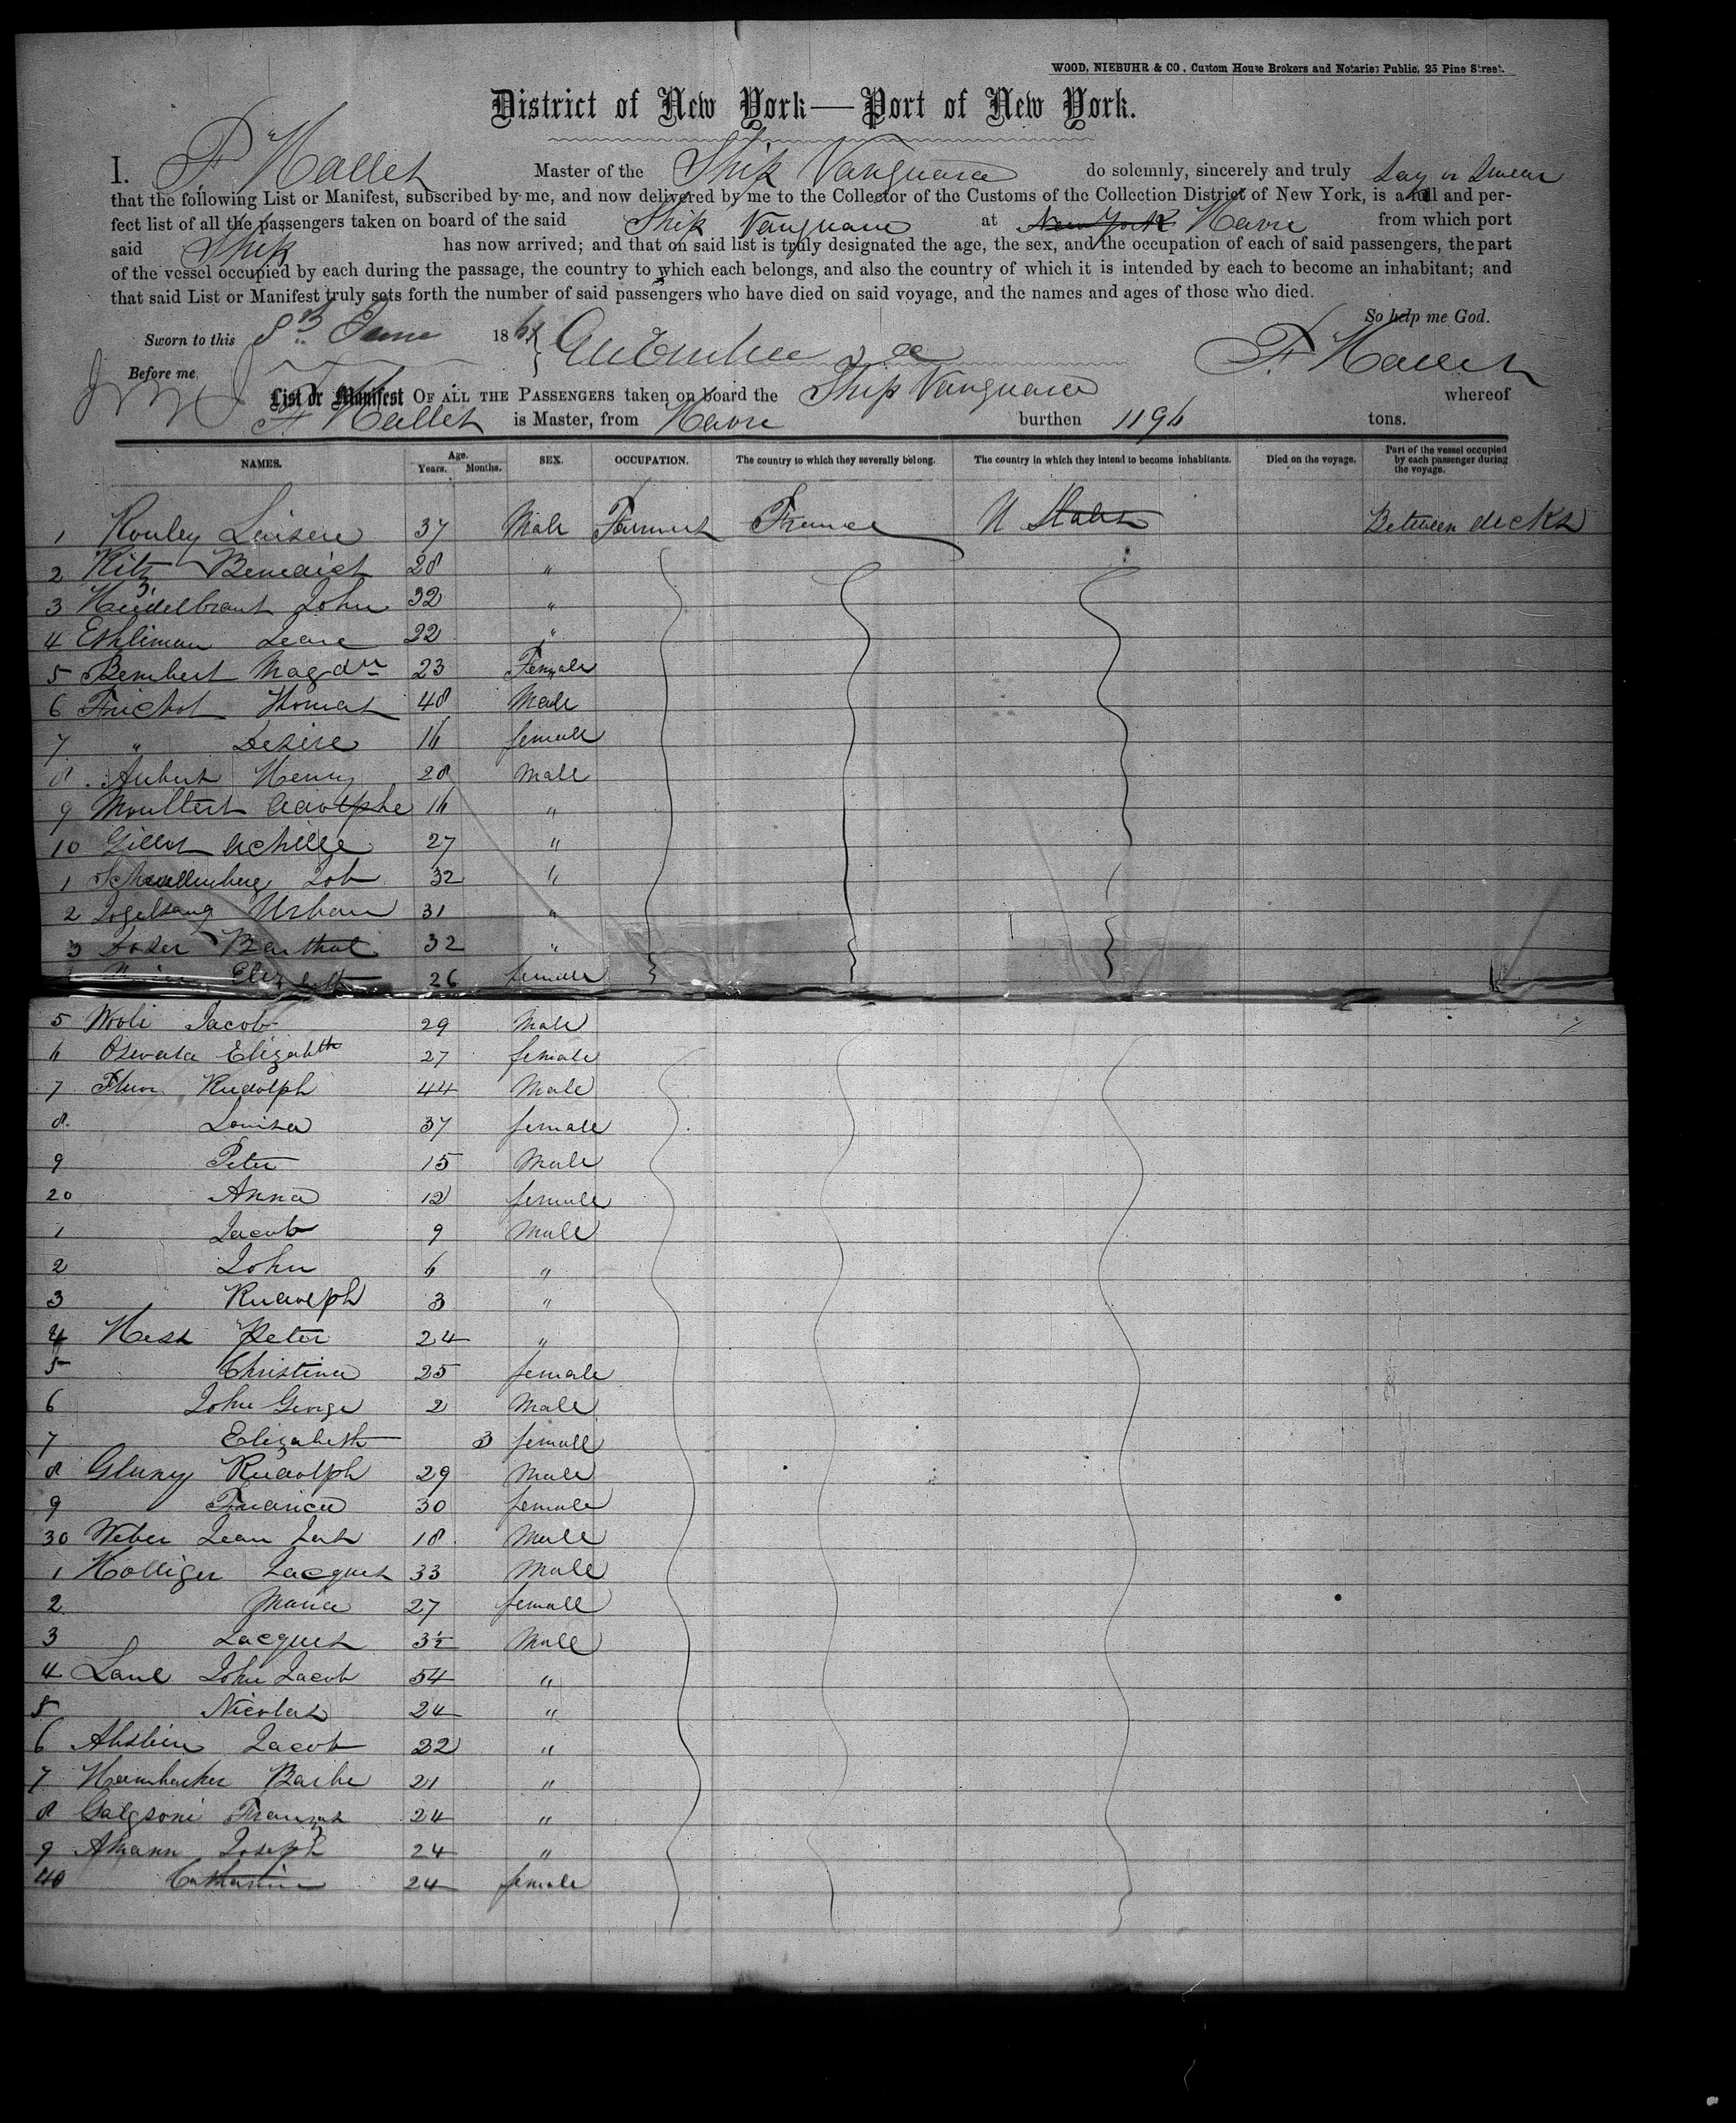 WOOD, NIEBUHR & CO, Custom House Brokers and Notaries Public, 25 Pine Street.
District of New York — Port of New York.
I. F Hallet Master of the Ship Vanguard do solemnly, sincerely and truly Say or Swear
that the following List or Manifest, subscribed by me, and now delivered by me to the Collector of the Customs of the Collection District of New York, is a full and per-
fect list of all the passengers taken on board of the said Ship Vanguard at New York Havre from which port
said Ship has now arrived; and that on said list is truly designated the age, the sex, and the occupation of each of said passengers, the part
of the vessel occupied by each during the passage, the country to which each belongs, and also the country of which it is intended by each to become an inhabitant; and
that said List or Manifest truly sets forth the number of said passengers who have died on said voyage, and the names and ages of those who died.
So help me God.
Sworn to this 8th June 186
F. Hallet
Before me
List or Manifest OF ALL THE PASSENGERS taken on board the Ship Vanguard whereof
F Hallet is Master, from Havre burthen 1196 tons.
NAMES. Age. Years. Months. SEX. OCCUPATION. The country to which they severally belong. The country in which they intend to become inhabitants. Died on the voyage. Part of the vessel occupied by each passenger during the voyage.
1 Rouley 37 Male Farmers France U States Between decks
2 Ritz Benedict 28 "
3 Heidelbrant John 32 "
4 Eshliman 22 "
5 Bembert Magdn 23 Female
6 Frichot Thomas 48 Male
7 " Desire 16 female
8 Aubert Henry 28 Male
9 Moultert Adolphe 16 "
10 Gillot Achille 27 "
1 Schnellenberg Job 32 "
2 Vogelsang Urban 31 "
3 Barthol 32 "
Elizabeth 26 female
5 Woli Jacob 29 Male
6 Oswala Elizabeth 27 female
7 Fluor Rudolph 44 Male
8 Louisa 37 female
9 Peter 15 Male
20 Anna 12 female
1 Jacob 9 Male
2 John 6 "
3 Rudolph 3 "
4 Hess Peter 24 "
5 Christina 25 female
6 John George 2 Male
7 Elizabeth 3 female
8 Gluny Rudolph 29 Male
9 30 female
30 Weber Jean 18 Male
1 Holliger Jacques 33 Male
2 Maria 27 female
3 Jacques 3½ Male
4 Laue John Jacob 54 "
5 Nicolas 24 "
6 Jacob 32 "
7 Barbe 21 "
8 24 "
9 Amann Joseph 24 "
40 Catharine 24 female